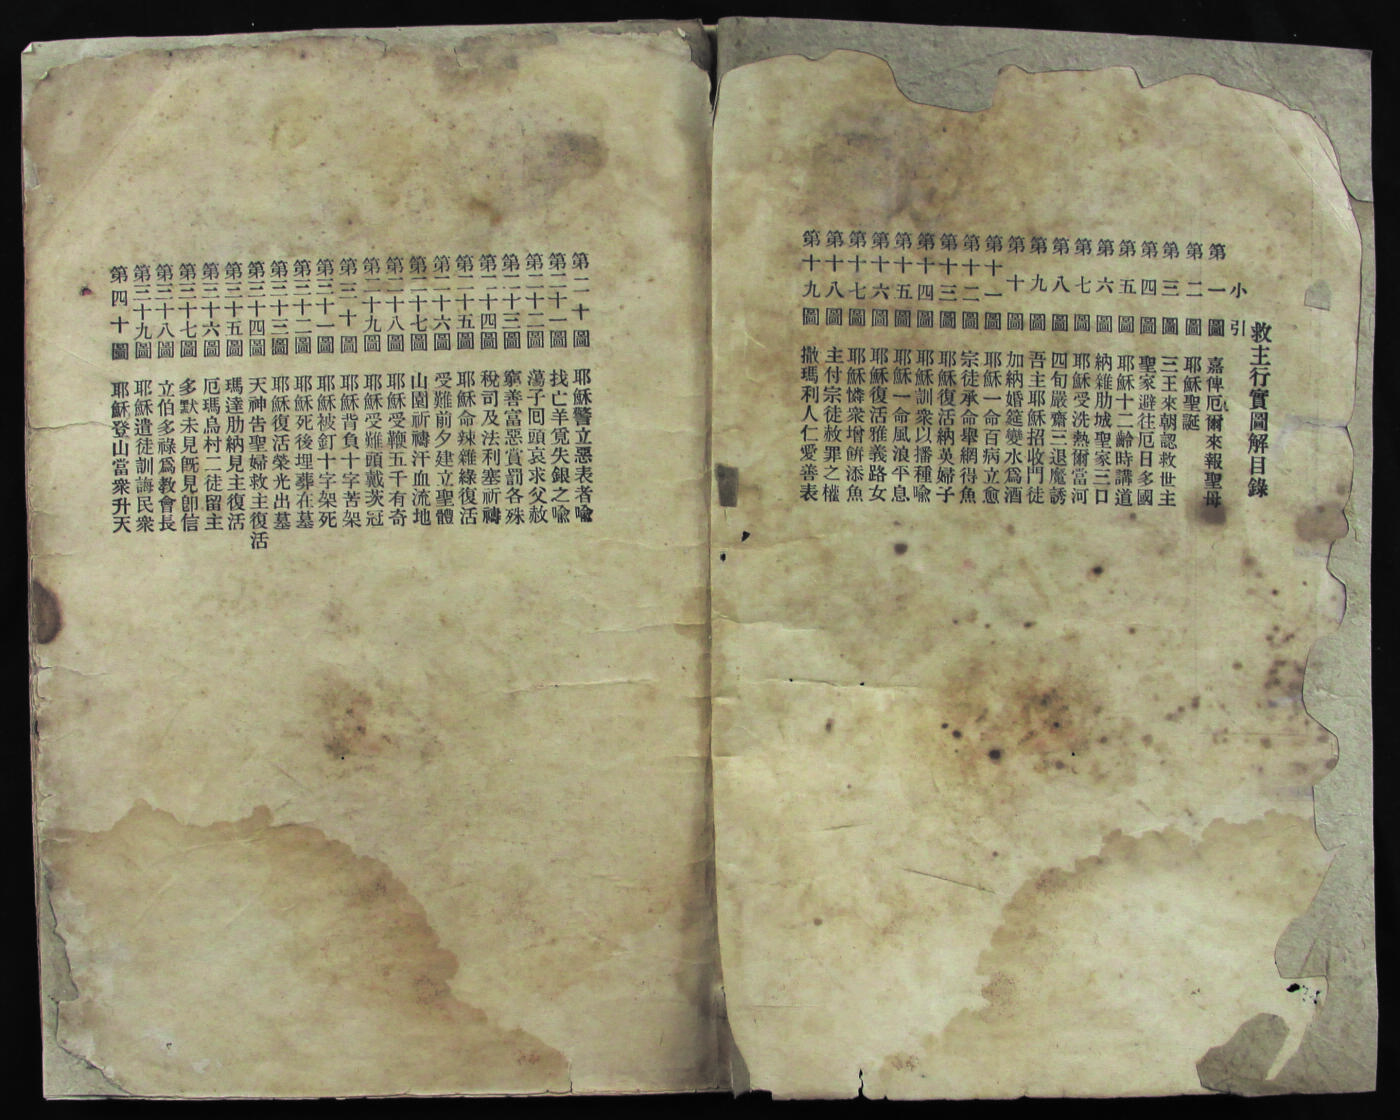 救主行實圖解目錄
小引
第一圖 嘉俾厄爾來報聖母
第二圖 耶穌聖誕
第三圖 三王來朝認救世主
第四圖 聖家避往厄日多國
第五圖 耶穌十二齡時講道
第六圖 納雜肋城聖家三口
第七圖 耶穌受洗熱爾當河
第八圖 四旬嚴齋三退魔誘
第九圖 吾主耶穌招收門徒
第十圖 加納婚筵變水爲酒
第十一圖 耶穌一命百病立愈
第十二圖 宗徒承命舉網得魚
第十三圖 耶穌復活納英婦子
第十四圖 耶穌訓衆以播種喩
第十五圖 耶穌一命風浪平息
第十六圖 耶穌復活雅義路女
第十七圖 耶穌憐衆增餠添魚
第十八圖 主付宗徒赦罪之權
第十九圖 撒瑪利人仁愛善表
第二十圖 耶穌警立惡表者喩
第二十一圖 找亡羊覓失銀之喩
第二十二圖 蕩子囘頭哀求父赦
第二十三圖 窮善富惡賞罰各殊
第二十四圖 稅司及法利塞祈禱
第二十五圖 耶穌命辣雜綠復活
第二十六圖 受難前夕建立聖體
第二十七圖 山園祈禱汗血流地
第二十八圖 耶穌受鞭五千有奇
第二十九圖 耶穌受難頭戴茨冠
第三十圖 耶穌背負十字苦架
第三十一圖 耶穌被釘十字架死
第三十二圖 耶穌死後埋葬在墓
第三十三圖 耶穌復活榮光出墓
第三十四圖 天神告聖婦救主復活
第三十五圖 瑪達肋納見主復活
第三十六圖 厄瑪烏村二徒留主
第三十七圖 多默未見旣見卽信
第三十八圖 立伯多祿爲敎會長
第三十九圖 耶穌遣徒訓誨民衆
第四十圖 耶穌登山當衆升天